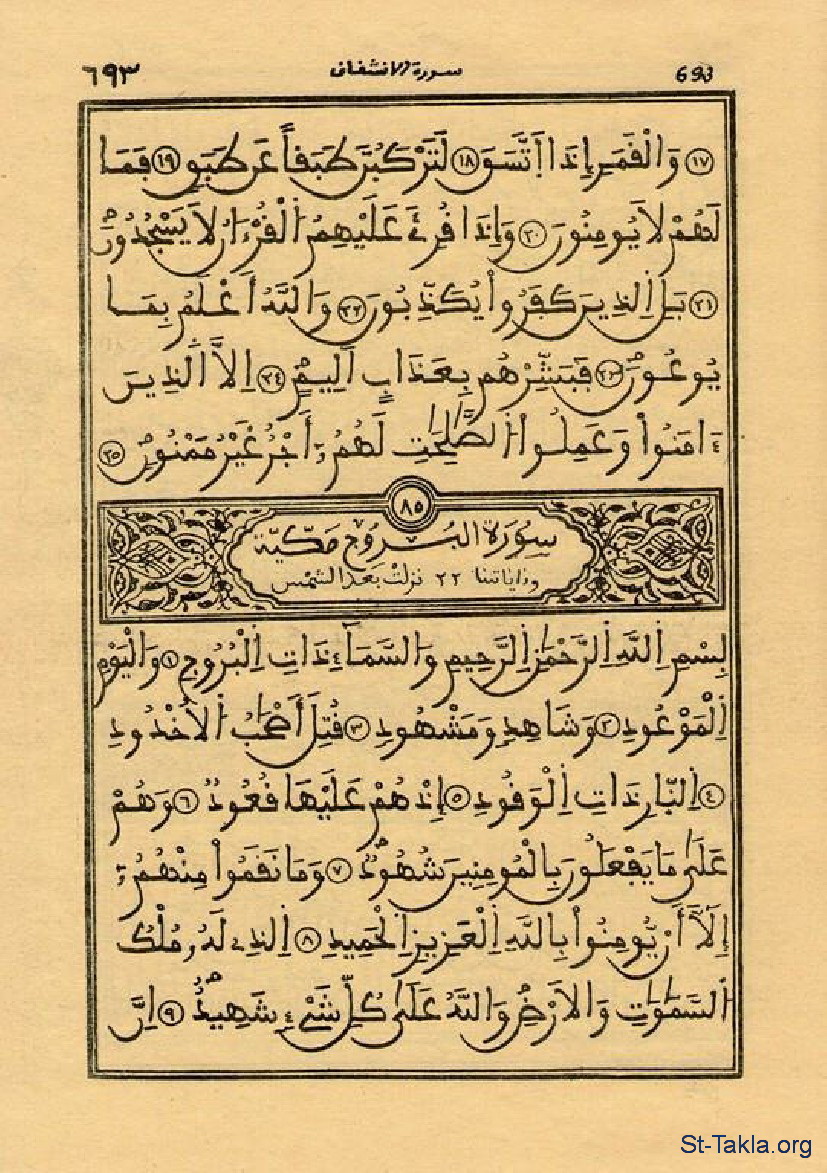 ٦٩٣ سورة الانشقاق 693
١٧ وَالْقَمَرِ إِذَا اَتَّسَقَ ١٨ لَتَرْكَبُنَّ طَبَقاً عَن طَبَقٍ ١٩ فَمَا
لَهُمْ لَا يُومِنُونَ ٢٠ وَإِذَا قُرِئَ عَلَيْهِمُ اُلْقُرْءَانُ لَا يَسْجُدُونَ
٢١ بَلِ اِلذِينَ كَفَرُواْ يُكَذِّبُونَ ٢٢ وَاللَّهُ أَعْلَمُ بِمَا
يُوعُونَ ٢٣ فَبَشِّرْهُم بِعَذَابٍ اَلِيمٍ ٢٤ اِلَّا اَلذِينَ
ءَامَنُواْ وَعَمِلُواْ اُلصَّٰلِحَٰتِ لَهُمُۥٓ أَجْرٌ غَيْرُ مَمْنُونٍ ٢٥
٨٥
سُورَة البُرُوج مَكِّيَّة
وءاياتها ٢٢ نزلت بعد الشمس
بِسْمِ اِللَّهِ اِلرَّحْمَٰنِ اِلرَّحِيمِ وَالسَّمَآءِ ذَاتِ اِلْبُرُوجِ ١ وَالْيَوْمِ
اِلْمَوْعُودِ ٢ وَشَاهِدٍ وَمَشْهُودٍ ٣ قُتِلَ أَصْحَٰبُ اُلْأُخْدُودِ
٤ اِلنّ۪ارِ ذَاتِ اِلْوَقُودِ ٥ إِذْ هُمْ عَلَيْهَا قُعُودٌ ٦ وَهُمْ
عَلَىٰ مَا يَفْعَلُونَ بِالْمُومِنِينَ شُهُودٌ ٧ وَمَا نَقَمُواْ مِنْهُمُۥٓ
إِلَّآ أَنْ يُّومِنُواْ بِاللَّهِ اِلْعَزِيزِ اِلْحَمِيدِ ٨ اِلذِے لَهُۥ مُلْكُ
اُلسَّمَٰوَٰتِ وَالْأَرْضِ وَاللَّهُ عَلَىٰ كُلِّ شَےْءٍ شَهِيدٌ ٩ اِنَّ
St-Takla.org